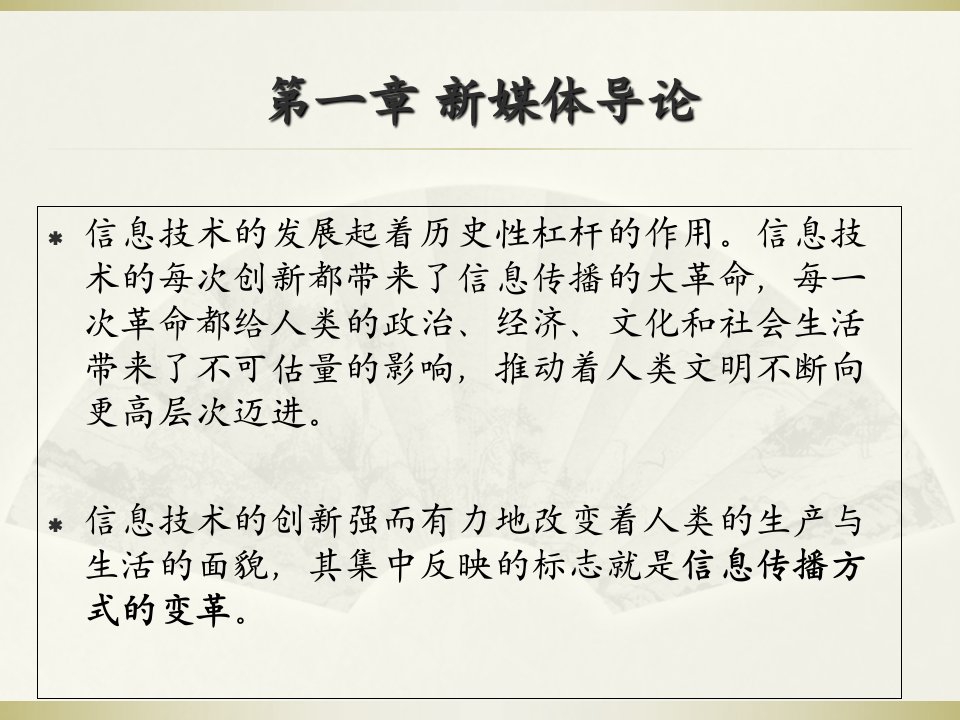 第一章 新媒体导论
信息技术的发展起着历史性杠杆的作用。信息技
术的每次创新都带来了信息传播的大革命，每一
次革命都给人类的政治、经济、文化和社会生活
带来了不可估量的影响，推动着人类文明不断向
更高层次迈进。
信息技术的创新强而有力地改变着人类的生产与
生活的面貌，其集中反映的标志就是信息传播方
式的变革。